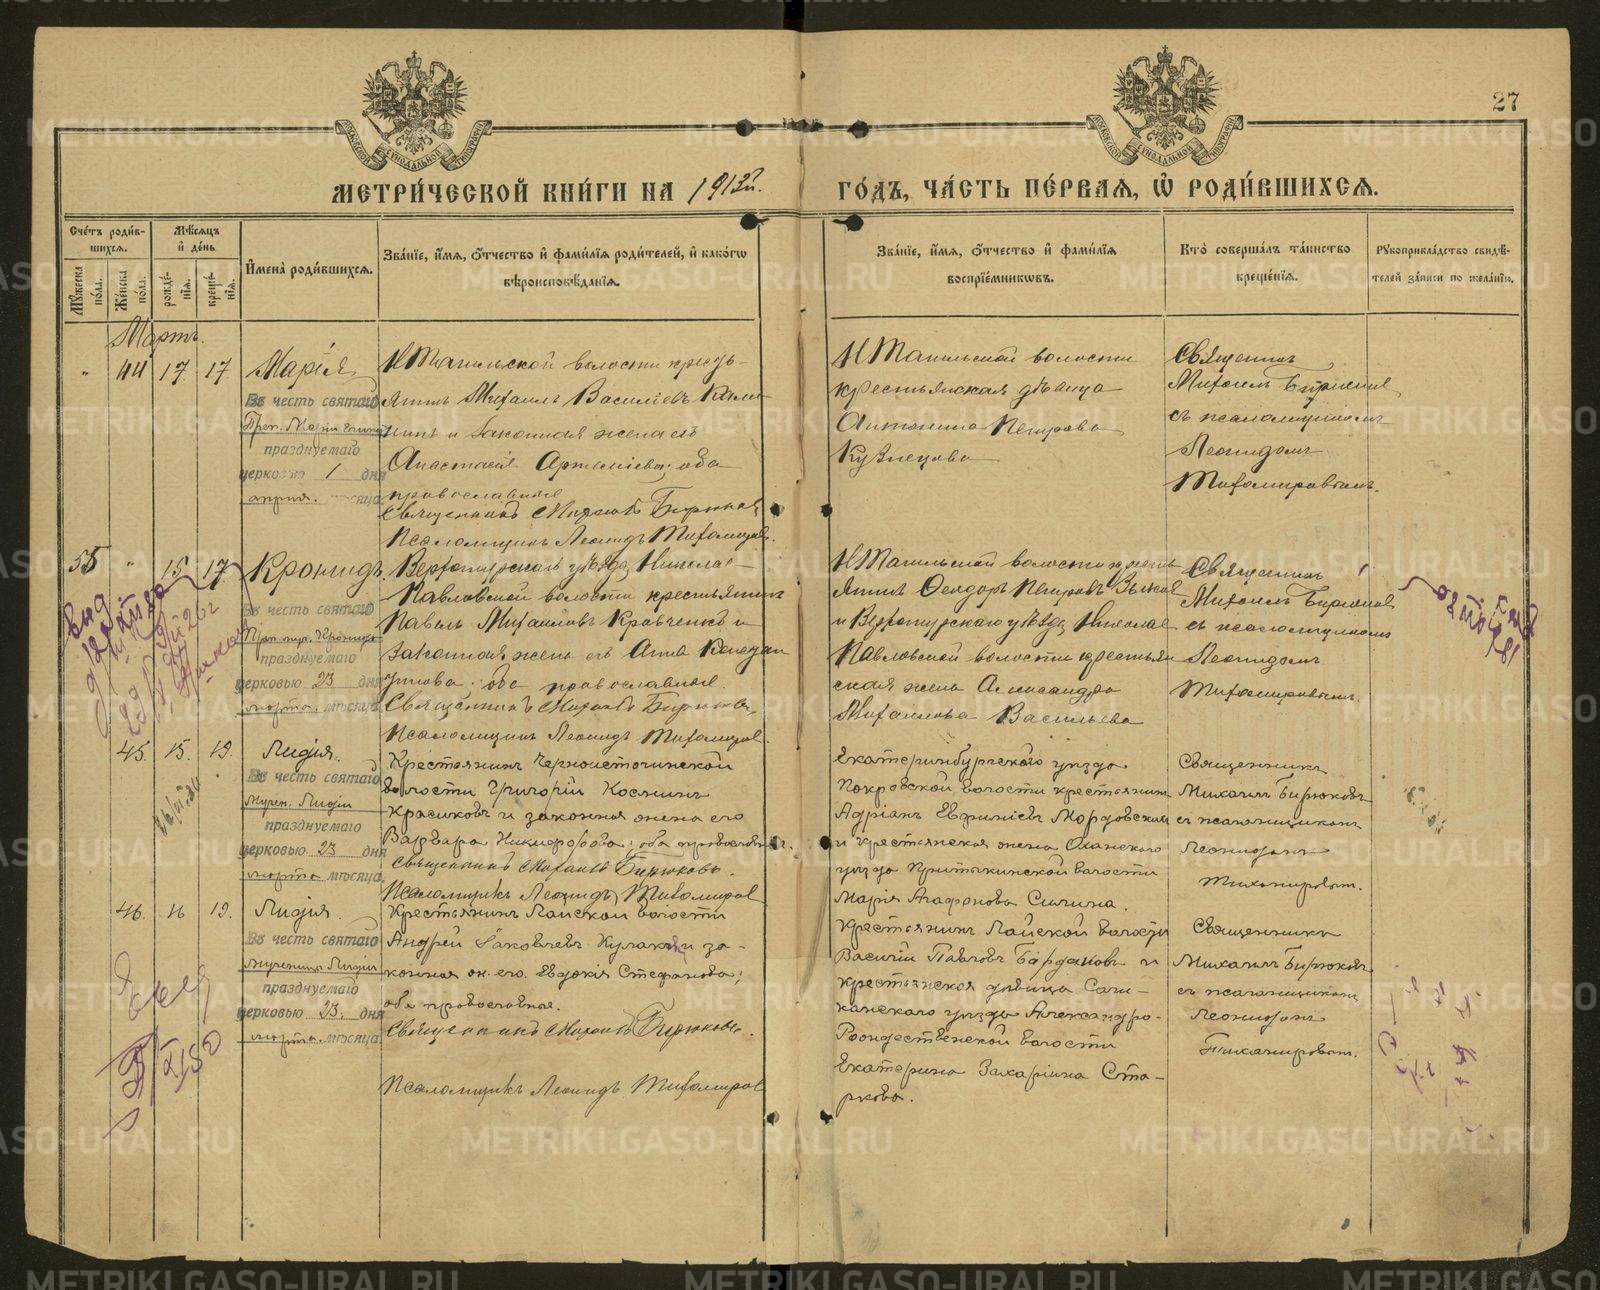 27
МОСКОВСКОЙ СѴНОДАЛЬНОЙ ТИПОГРАФІИ
МОСКОВСКОЙ СѴНОДАЛЬНОЙ ТИПОГРАФІИ
МЕТРИ́ЧЕСКОЙ КНИ́ГИ НА 1913й.
ГО́ДЪ, ЧА́СТЬ ПЕ́РВАѦ, Ѡ҆ РОДИ́ВШИХСѦ.
Сче́тъ роди́вшихсѧ.
Мꙋ́жеска по́ла.
Же́нска по́ла.
Мѣ́сѧцъ и҆ де́нь
рожде́нїѧ.
креще́нїѧ.
И҆мена̀ роди́вшихсѧ.
Зва́нїе, и҆́мѧ, ѻ҆́тчество и҆ фами́лїѧ роди́телей, и҆ какѡ́гѡ
вѣроисповѣ́данїѧ.
Зва́нїе, и҆́мѧ, ѻ҆́тчество и҆ фами́лїѧ
воспрїе́мникѡвъ.
Кто̀ соверша́лъ та́инство
креще́нїѧ.
Рꙋкоприкла́дство свидѣ́телей за́писи по жела́нїю.
Мартъ.
" 44 17 17 Марія
Въ честь святаго
Преп. Маріи Египт
празднуемаго
церковью 1 дня
апрѣл. мѣсяца
Н Тагильской волости кресть-
янинъ Михаилъ Васильевъ
и законная жена его
Анастасія Артеміева; оба
православные
Священникъ Михаилъ Бирюковъ
Псаломщикъ Леонидъ Тихомировъ.
Н Тагильской волости
крестьянская дѣвица
Антонина Петрова
Кузнецова
Священникъ
Михаилъ Бирюковъ
съ псаломщикомъ
Леонидомъ
Тихомировымъ.
55 " 15 17 Кронидъ.
Въ честь святаго
Прп. муч. Кронида
празднуемаго
церковью 23 дня
марта. мѣсяца.
Верхотурскаго уѣзда, Николае-
Павловской волости крестьянинъ
Павелъ Михайловъ Кравченко и
законная жена его Анна
оба православные.
Священникъ Михаилъ Бирюковъ,
Псаломщикъ Леонидъ Тихомировъ.
Н Тагильской волости кресть
янинъ Ѳеодоръ Петровъ
и Верхотурскаго уѣзда, Николае
Павловской волости крестьян
ская жена Александра
Михаилова Васильева
Священникъ
Михаилъ Бирюковъ
съ псаломщикомъ
Леонидомъ
Тихомировымъ.
45. 15. 19. Лидія.
Въ честь святаго
Мучен. Лидіи
празднуемаго
церковью 23 дня
марта мѣсяца.
Крестьянинъ Черноисточинской
волости Григорій Косминъ
Красиковъ и законная жена его
Варвара Никифорова; оба православн.
Священникъ Михаилъ Бирюковъ.
Псаломщикъ Леонидъ Тихомиров
Екатеринбургскаго уѣзда
Покровской волости крестьянинъ
Адріанъ Евфиміевъ Мордовскихъ
и крестьянская жена Оханскаго
уѣзда волости
Марія Агафонова Силина.
Священникъ
Михаилъ Бирюковъ
съ псаломщикомъ
Леонидомъ
Тихомировым.
46. 16 19. Лидія.
Въ честь святаго
мученицы Лидіи
празднуемаго
церковью 23. дня
марта. мѣсяца.
Крестьянинъ Лайской волости
Андрей Іаковлевъ Кулакъ и за-
конная ж. его Евдокія Стефанова;
оба православные.
Священникъ Михаилъ Бирюковъ.
Псаломщикъ Леонидъ Тихомиров
Крестьянинъ Лайской волости
Василій Павловъ Бардаковъ и
крестьянская дѣвица
уѣзда Александро-
Рождественской волости
Екатерина Захаріина Ста-
ркова.
Священникъ
Михаилъ Бирюковъ
съ псаломщикомъ
Леонидомъ
Тихомировым.
METRIKI.GASO-URAL.RU